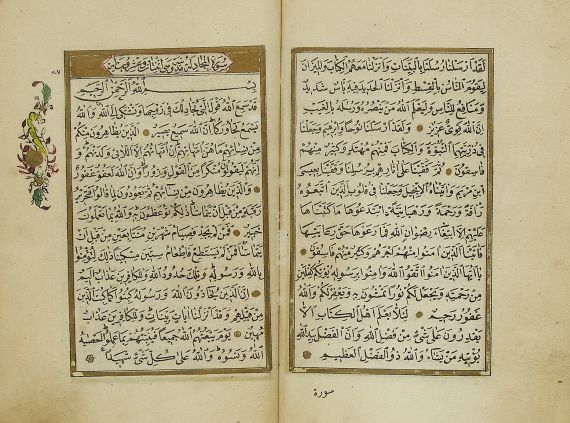 لقد ارسلنا رسلنا بالبينات وانزلنا معهم الكتاب والميزان
ليقوم الناس بالقسط وانزلنا الحديد فيه بأس شديد
ومنافع للناس وليعلم الله من ينصره ورسله بالغيب
ان الله قوى عزيز ولقد ارسلنا نوحا وابرهيم وجعلنا
فى ذريتهما النبوة والكتاب فمنهم مهتد وكثير منهم
فاسقون ثم قفينا على اثارهم برسلنا وقفينا بعيسى
ابن مريم واتيناه الانجيل وجعلنا فى قلوب الذين اتبعوه
رأفة ورحمة ورهبانية ابتدعوها ما كتبناها
عليهم الا ابتغاء رضوان الله فما رعوها حق رعايتها
فاتينا الذين امنوا منهم اجرهم وكثير منهم فاسقون
يا ايها الذين امنوا اتقوا الله وامنوا برسوله يؤتكم كفلين
من رحمته ويجعل لكم نورا تمشون به ويغفر لكم والله
غفور رحيم لئلا يعلم اهل الكتاب الا
يقدرون على شئ من فضل الله وان الفضل بيد الله
يؤتيه من يشاء والله ذو الفضل العظيم
سورة
سورة المجادلة
بسم الله الرحمن الرحيم
قد سمع الله قول التى تجادلك فى زوجها وتشتكى الى الله والله
يسمع تحاوركما ان الله سميع بصير الذين يظاهرون منكم
من نسائهم ما هن امهاتهم ان امهاتهم الا اللائى ولدنهم و
انهم ليقولون منكرا من القول وزورا وان الله لعفو غفور
والذين يظاهرون من نسائهم ثم يعودون لما قالوا فتحرير
رقبة من قبل ان يتماسا ذلكم توعظون به والله بما تعملون
خبير فمن لم يجد فصيام شهرين متتابعين من قبل ان
يتماسا فمن لم يستطع فاطعام ستين مسكينا ذلك لتؤمنوا
بالله ورسوله وتلك حدود الله وللكافرين عذاب اليم
ان الذين يحادون الله ورسوله كبتوا كما كبت الذين
من قبلهم وقد انزلنا ايات بينات وللكافرين عذاب
مهين يوم يبعثهم الله جميعا فينبئهم بما عملوا احصيه
الله ونسوه والله على كل شئ شهيد